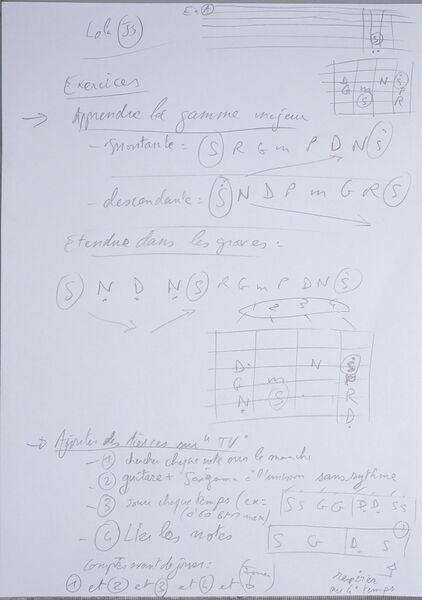 Lola JS
Ex ①
S
D N Ṡ
G m P
S R
Exercices
→ Apprendre la gamme majeur
- montante = S R G m P D N Ṡ
- descendante = Ṡ N D P m G R S
Etendue dans les graves =
S Ṇ Ḍ Ṇ S R G m P D N Ṡ
1 2 3 4
D N Ṡ
G m P
Ṇ S R
Ḍ
→ Ajouter des tierces sur "TV"
- ① chercher chaque note sur le manche
- ② guitare + Sargam à l'unisson sans rythme
- ③ Jouer chaque temps (ex=
SS GG ḌḌ SS
à 60 BPM max)
- ④ Lier les notes
S G Ḍ S
Comptes avant de jouer:
① et ② et ③ et ④ et
Jouer
répéter